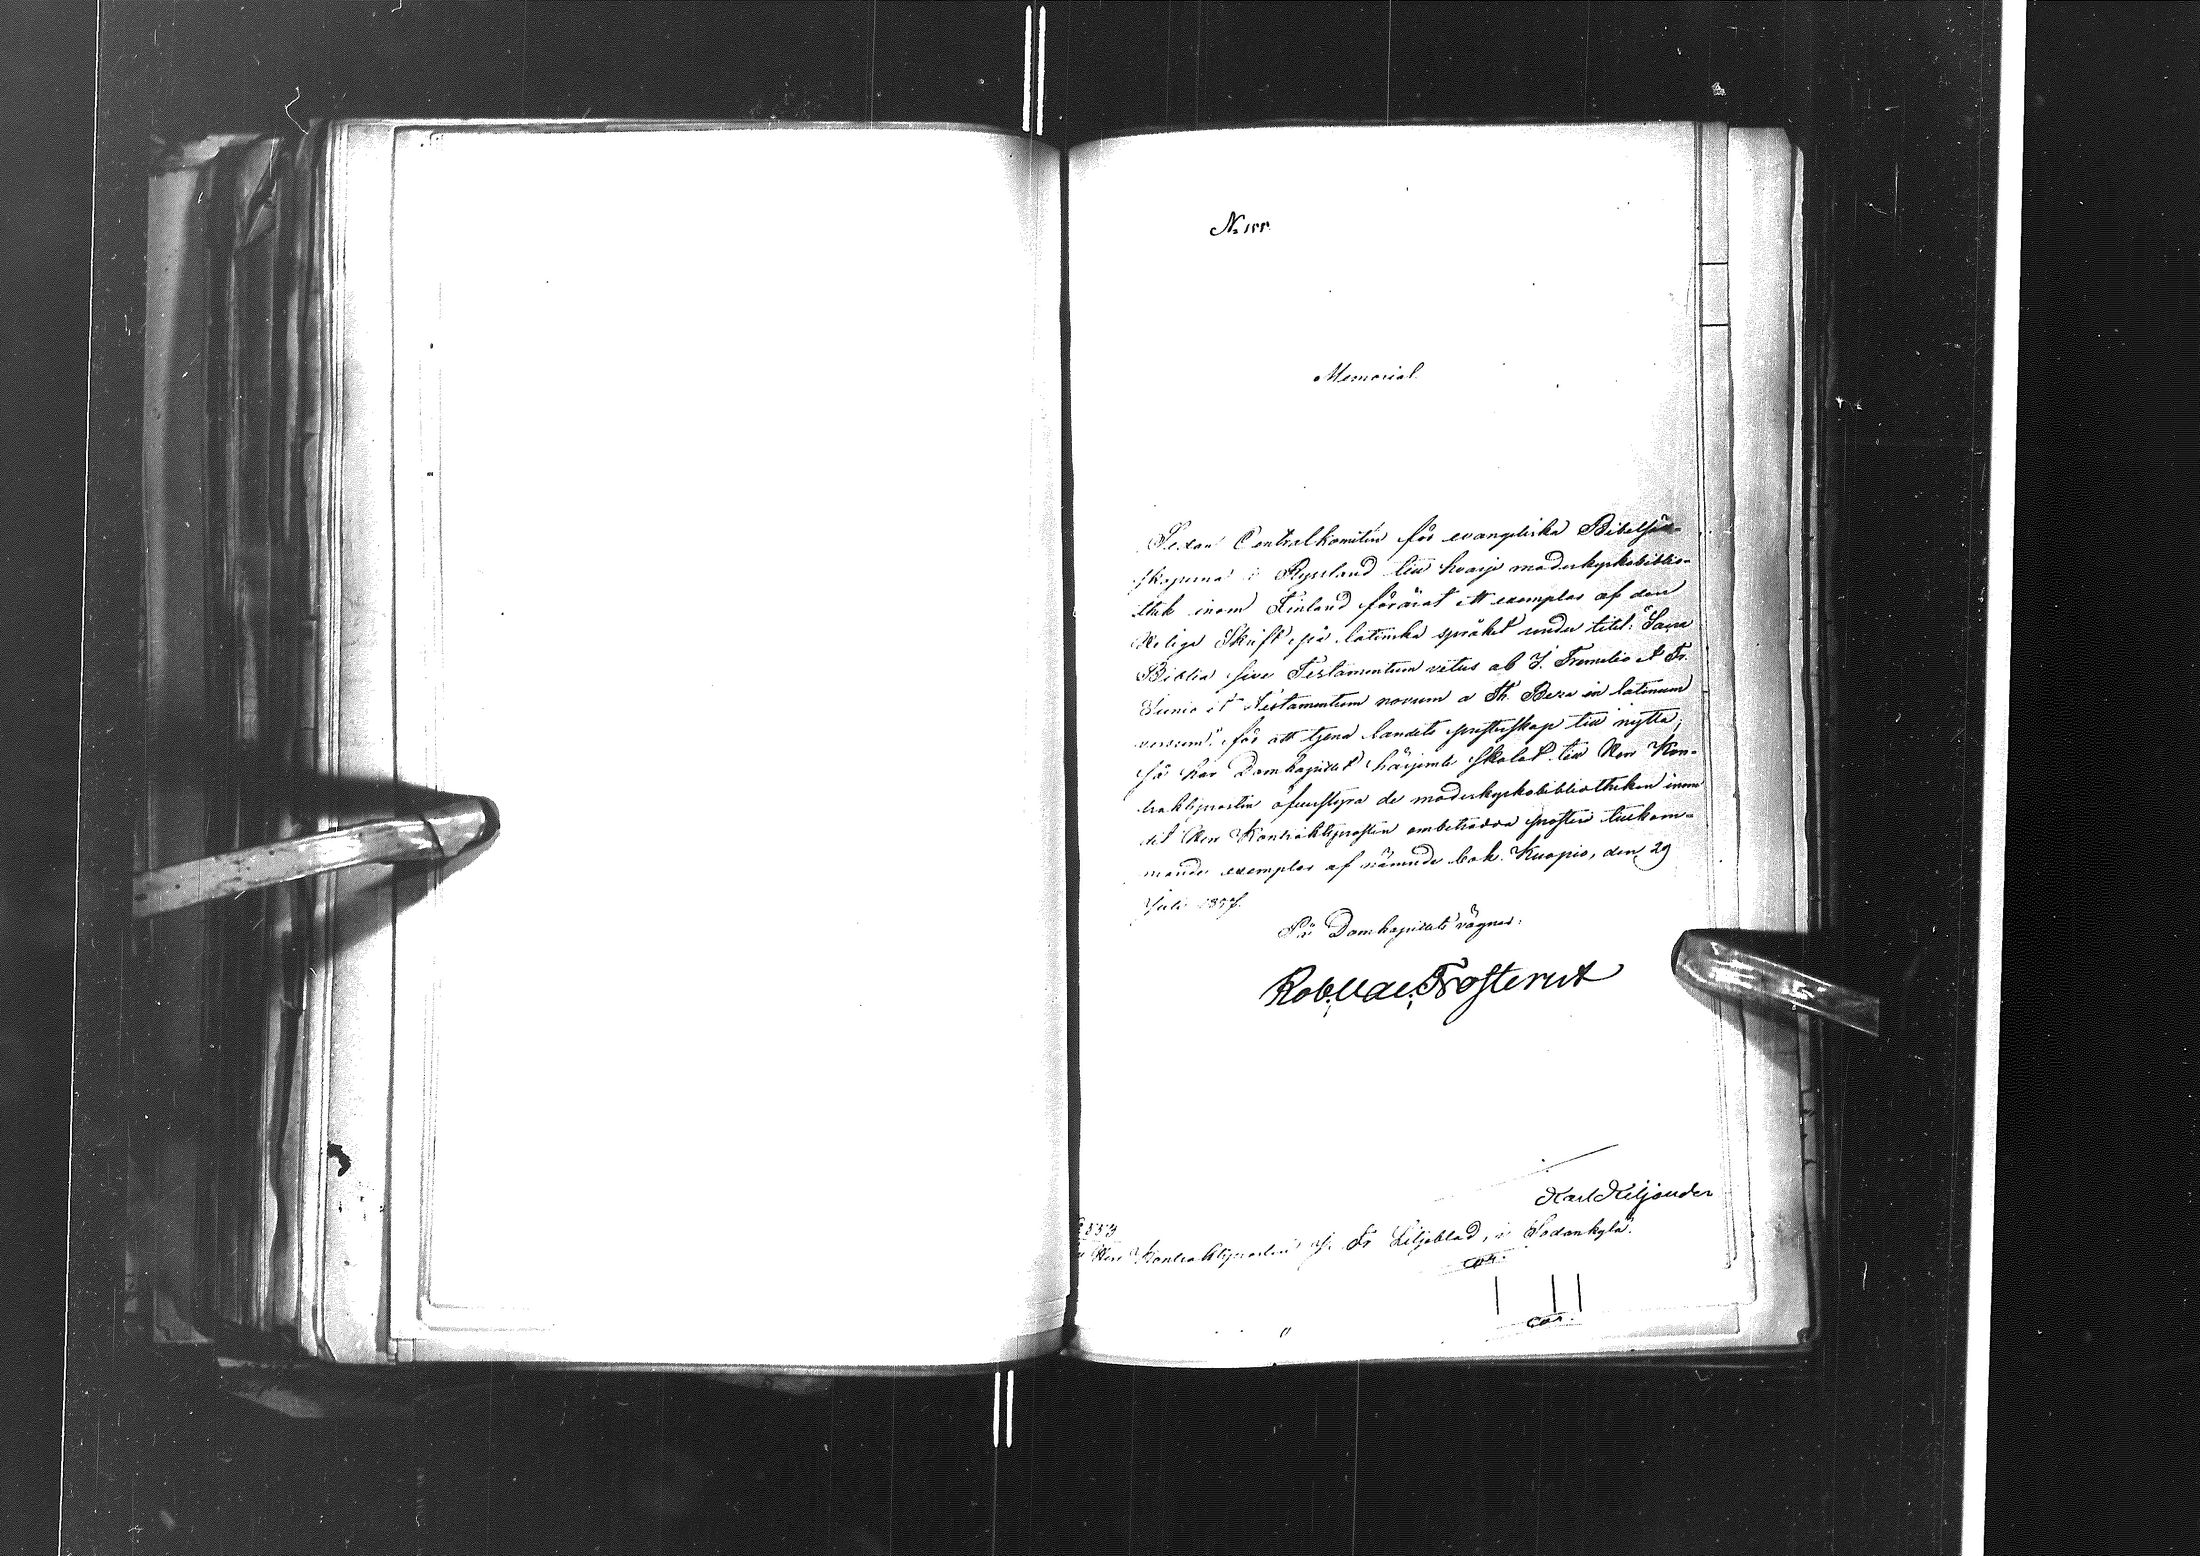 Memorial.
Sedan Centralkomitén för evangeliska Bibelsäll-
skaperna i Ryssland till hvarje moderkyrkobiblio-
thek inom Finland förärat ett exemplar af den
Heliga Skrift på latinska språket under titel: "Sacra
Biblia sive Testamentum vetus ab I. Tremelio et Fr.
Junio et Testamentum novum a Th. Beza in latinum
versum" för att tjena landets presterskap till nytta;
så har Domkapitlet härjemte skolat till Herr Kon-
traktsprosten öfverstyra de moderkyrkobibliotheken inom
det Herr Kontraktsprosten ombetrodda prosteri tillkom-
mande exemplar af nämnde bok. Kuopio, den 29
Juli
På Domkapitlets vägnar:
Rob. Val. Frosterus
Karl Kiljander
Herr Kontraktsprosten Fr Liljeblad, i Sodankylä.